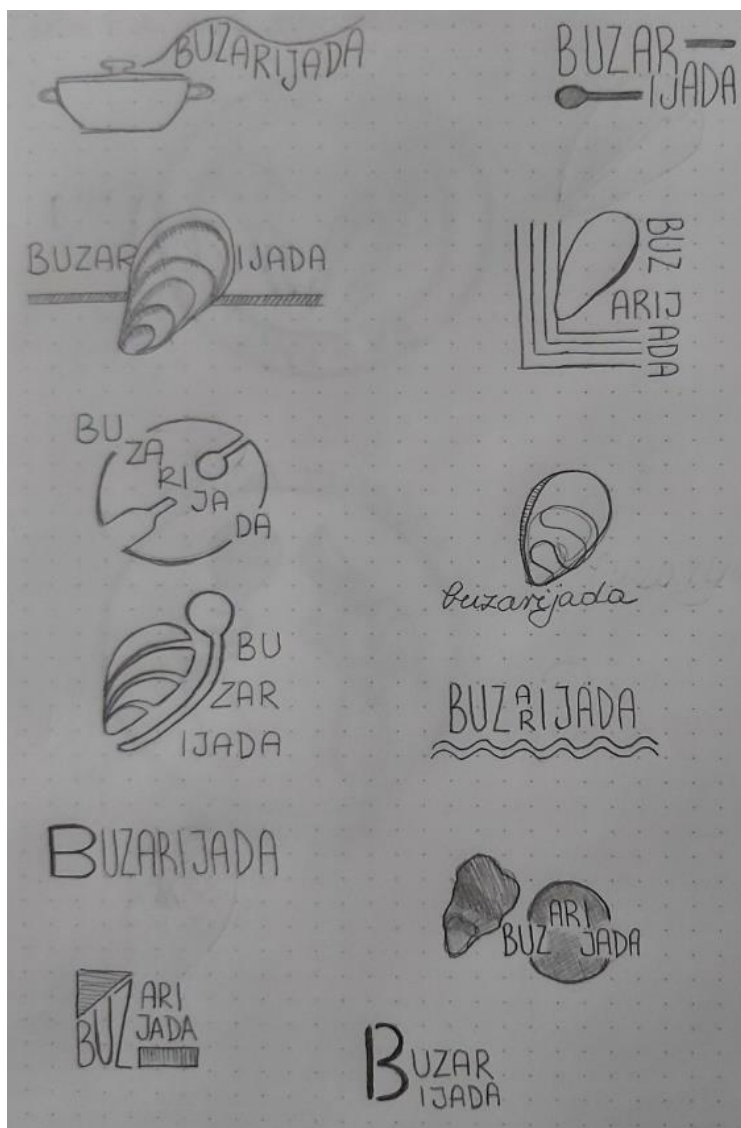 BUZARIJADA
BUZAR
IJADA
BUZAR IJADA
BUZ
ARIJ
ADA
BU
ZA
RI
JA
DA
buzarijada
BU
ZAR
IJADA
BUZARIJADA
BUZARIJADA
ARI
BUZ JADA
BUZ
ARI
JADA
BUZAR
IJADA